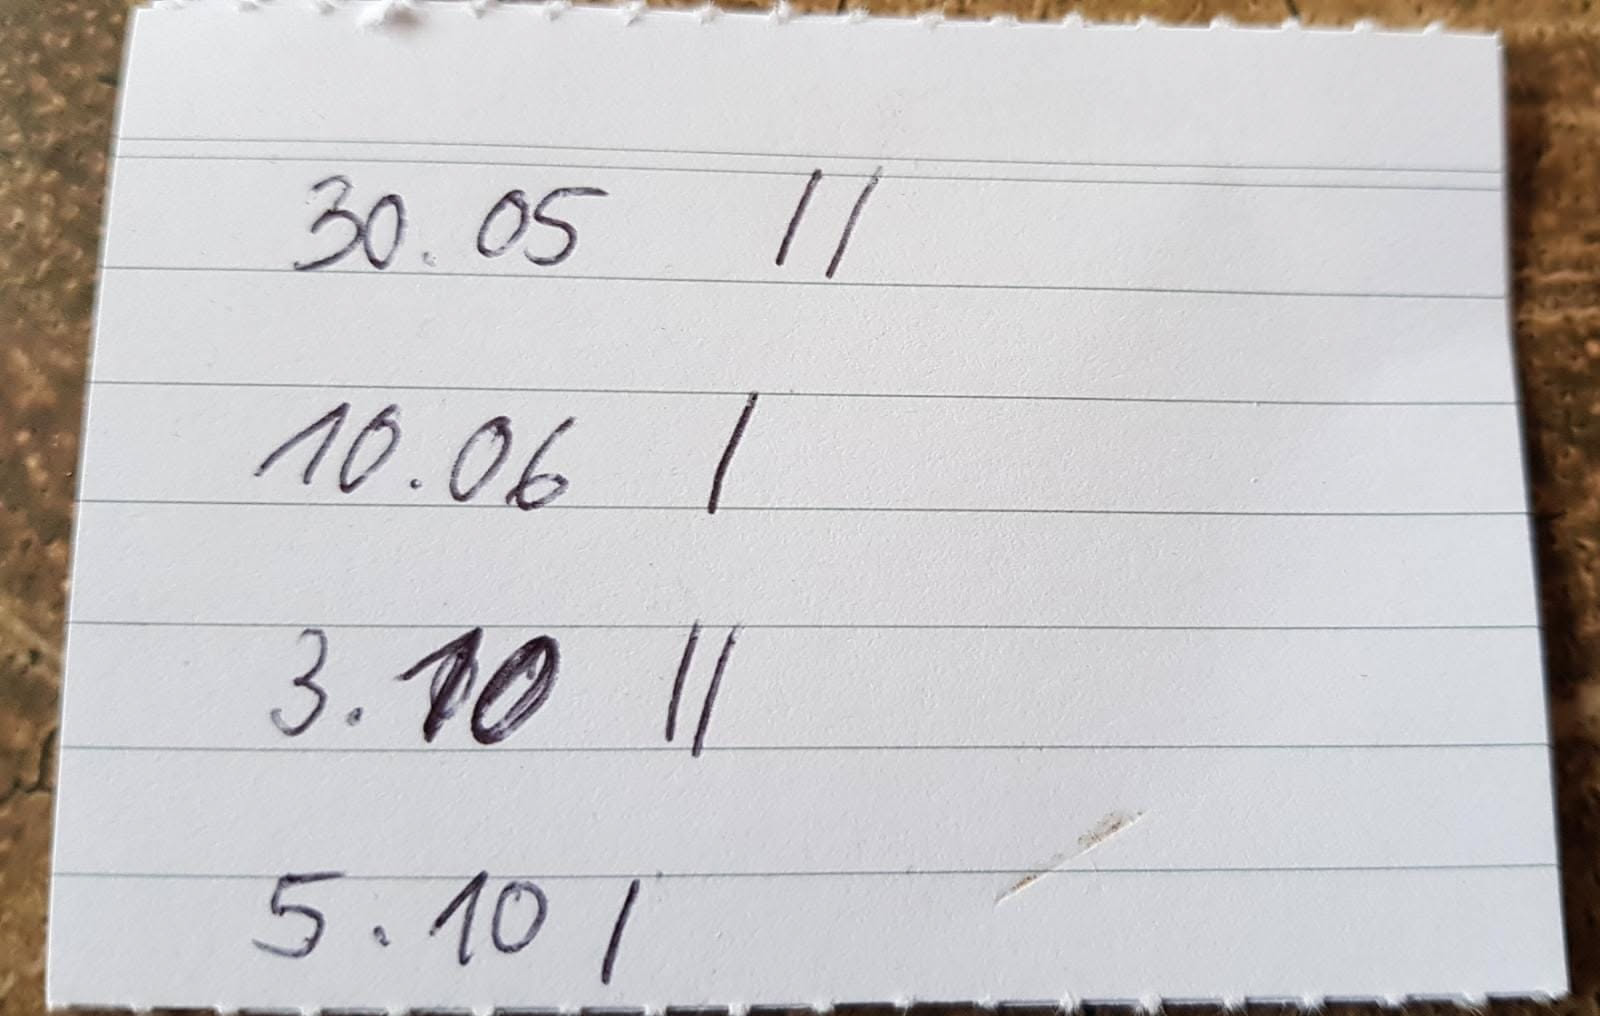 30.05 ||
10.06 |
3.10 ||
5.10 |